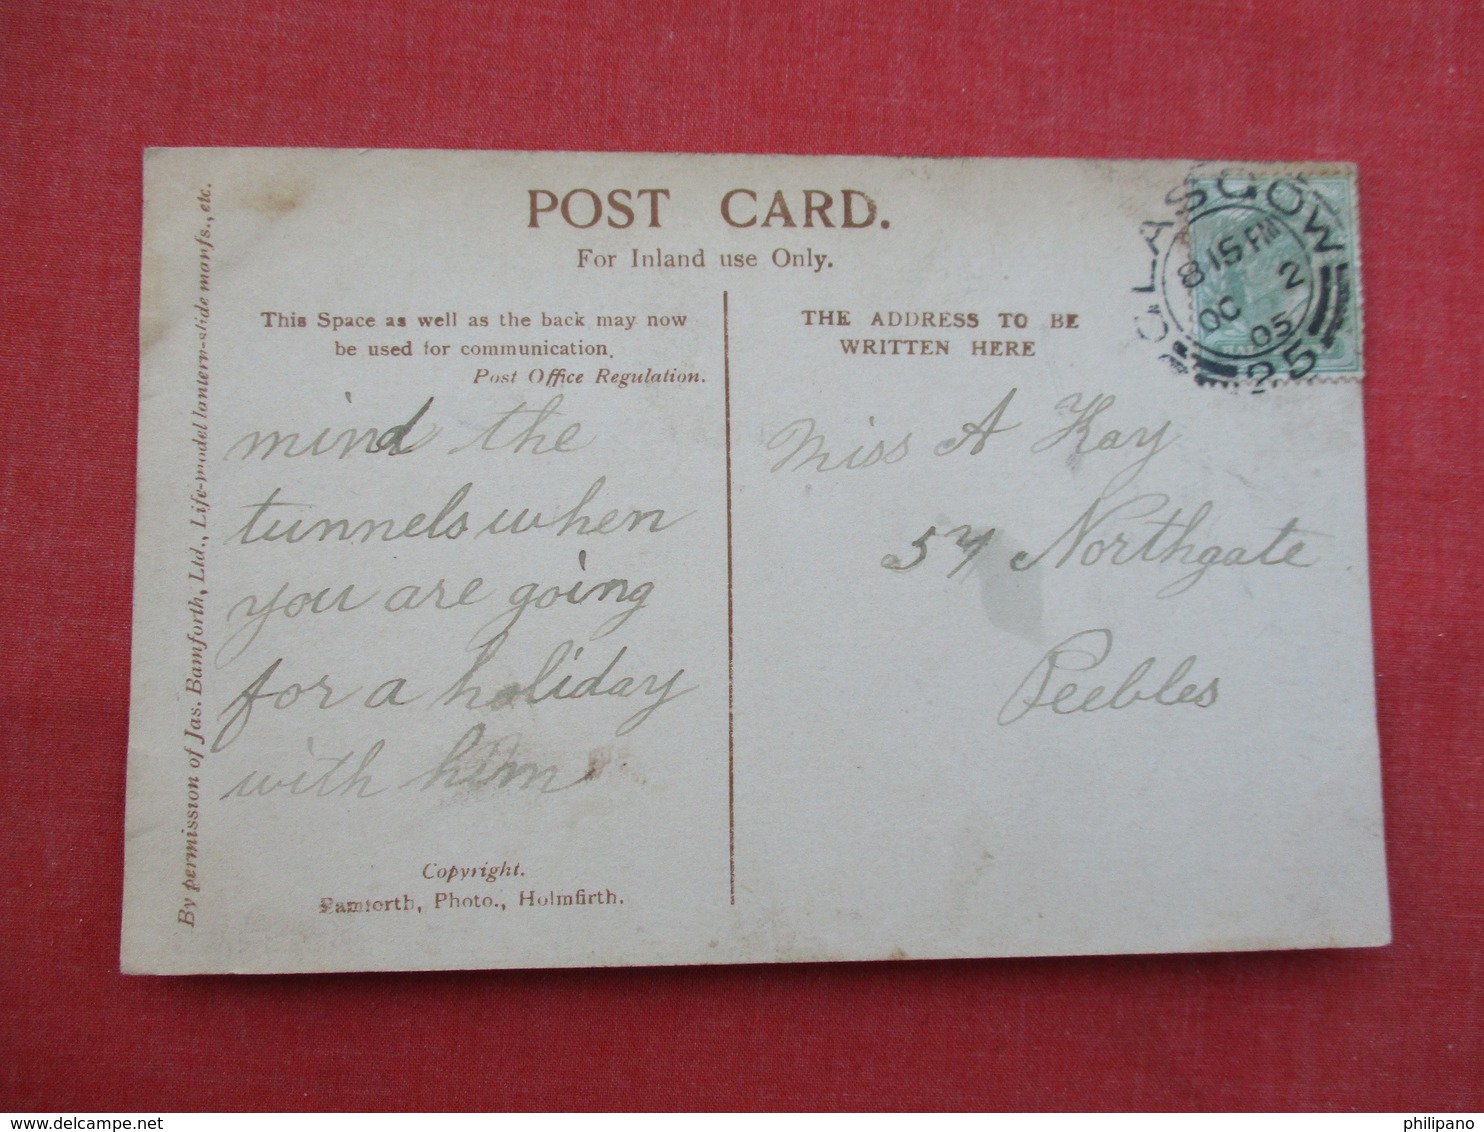 POST CARD.
For Inland use Only.
This Space as well as the back may now
be used for communication.
Post Office Regulation.
mind the
tunnels when
you are going
for a holiday
with him
Copyright.
Bamforth, Photo., Holmfirth.
By permission of Jas. Bamforth, Ltd., Life-model lantern-slide manfs., etc.
THE ADDRESS TO BE
WRITTEN HERE
Miss A Kay
57 Northgate
Peebles
GLASGOW
8 15 PM
OC 2
05
25
www.delcampe.net
philipano